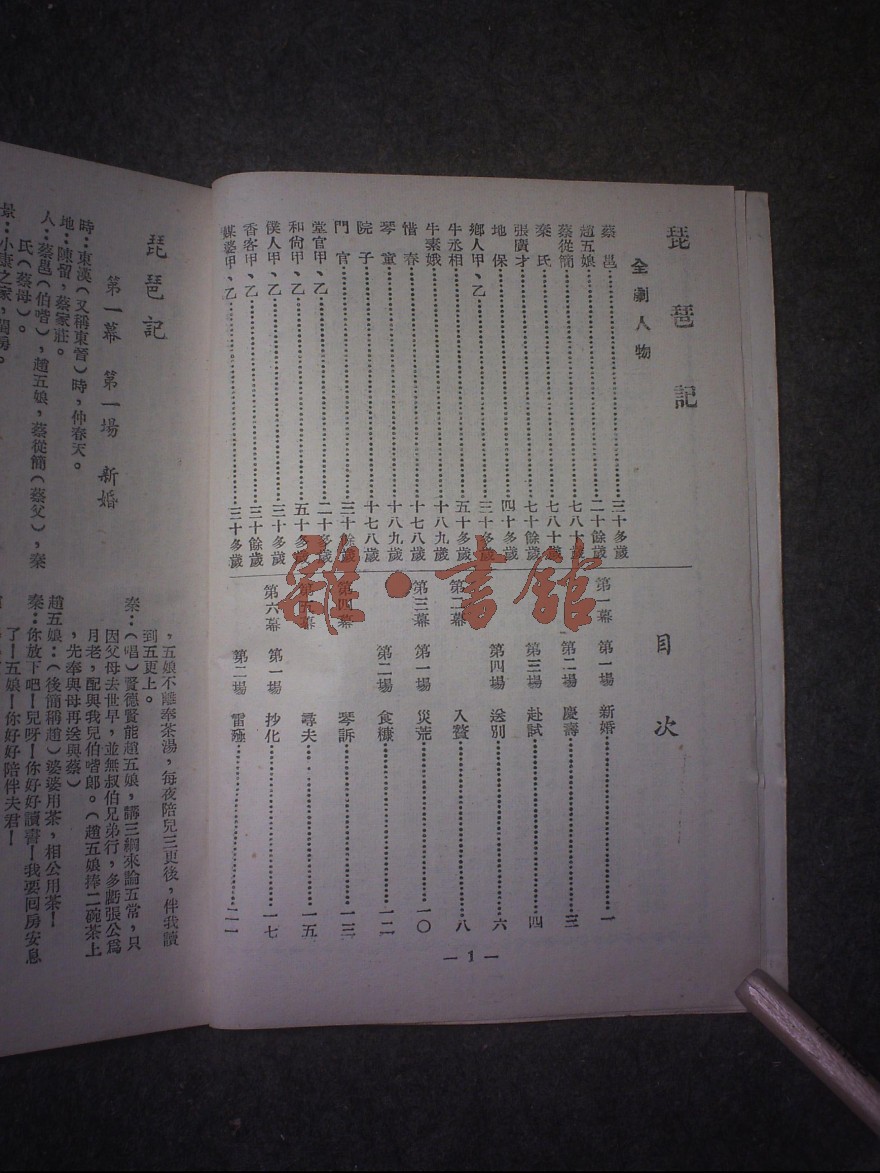 琵琶記
全劇人物
蔡邕……三十多歲
趙五娘……二十餘歲
蔡從簡……七八十歲
秦氏……七八十歲
張廣才……七十餘歲
地保……四十多歲
鄉人甲、乙……三十多歲
牛丞相……五十多歲
牛素娥……十八九歲
惜春……十七八歲
琴童……十八九歲
院子……十七八歲
門官……三十餘歲
堂官甲、乙……二十多歲
和尙甲、乙……五十多歲
僕人甲、乙……三十多歲
香客甲、乙……三十餘歲
媒婆甲、乙……三十多歲
目次
第一幕 第一場 新婚……一
第二場 慶壽……三
第三場 赴試……四
第四場 送別……六
第二幕 入贅……八
第三幕 第一場 災荒……一〇
第二場 食糠……一二
第四幕 琴訴……一三
第五幕 尋夫……一五
第六幕 第一場 抄化……一七
第二場 雷殛……二一
—1—
雜·書館
琵琶記
第一幕 第一場 新婚
時：東漢（又稱東晉）時，仲春天。
地：陳留，蔡家莊。
人：蔡邕（伯喈），趙五娘，蔡從簡（蔡父），秦
氏（蔡母）。
景：小康之家，閨房。
，五娘不離奉茶湯，每夜陪兒三更後，伴我讀
到五更上。
秦：（唱）賢德賢能趙五娘，講三綱來論五常，只
因父母去世早，並無叔伯兄弟行，多虧張公爲
月老，配與我兒伯喈郎。（趙五娘捧二碗茶上
，先奉與母再送與蔡）
趙五娘：（後簡稱趙）婆婆用茶，相公用茶！
秦：你放下吧！兒呀！你好好讀書！我要回房安息
了！五娘！你好好陪伴夫君！